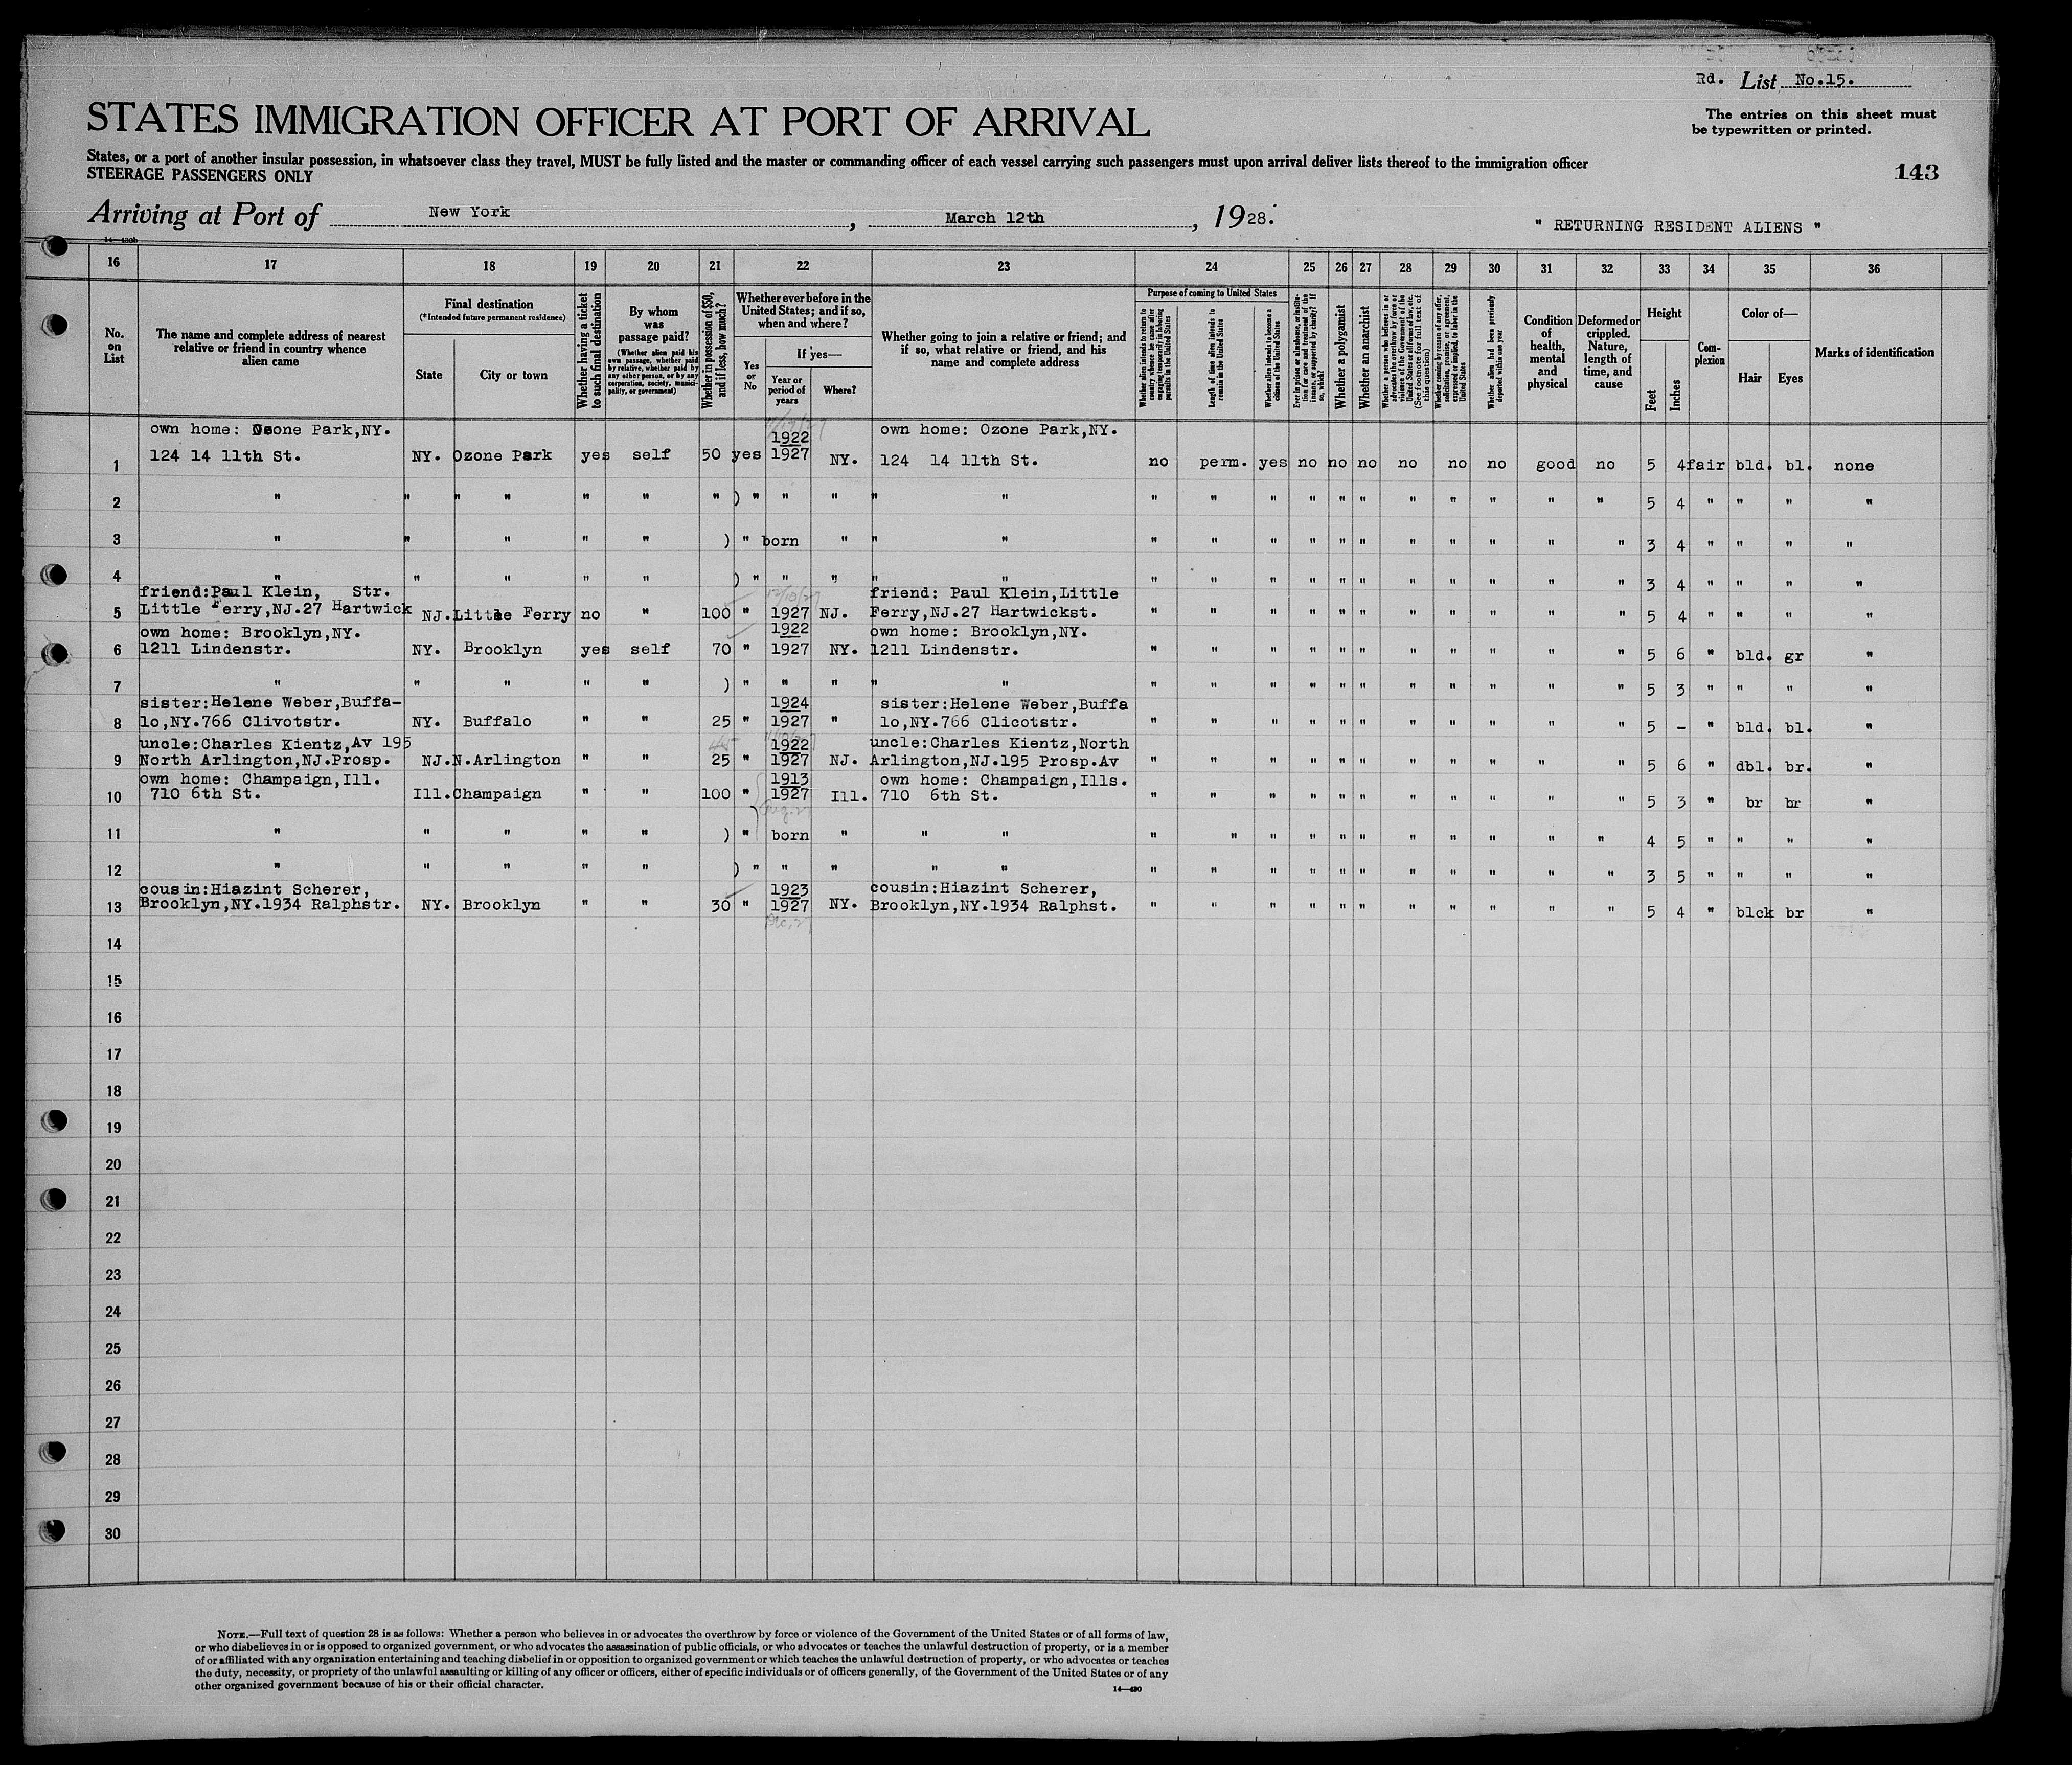 Rd. List No.15.
STATES IMMIGRATION OFFICER AT PORT OF ARRIVAL
The entries on this sheet must
be typewritten or printed.
States, or a port of another insular possession, in whatsoever class they travel, MUST be fully listed and the master or commanding officer of each vessel carrying such passengers must upon arrival deliver lists thereof to the immigration officer
STEERAGE PASSENGERS ONLY
143
Arriving at Port of New York, March 12th, 1928.
" RETURNING RESIDENT ALIENS "
16 17 18 19 20 21 22 23 24 25 26 27 28 29 30 31 32 33 34 35 36
No. on List
The name and complete address of nearest relative or friend in country whence alien came
Final destination
(*Intended future permanent residence)
State
City or town
Whether having a ticket to such final destination
By whom was passage paid?
(Whether alien paid his own passage, whether paid by relative, whether paid by any other person, or by any corporation, society, municipality, or government)
Whether in possession of $50, and if less, how much?
Whether ever before in the United States; and if so, when and where?
Yes or No
If yes—
Year or period of years
Where?
Whether going to join a relative or friend; and if so, what relative or friend, and his name and complete address
Purpose of coming to United States
Whether alien intends to return to country whence he came after engaging temporarily in laboring pursuits in the United States
Length of time alien intends to remain in the United States
Whether alien intends to become a citizen of the United States
Ever in prison or almshouse, or institution for care and treatment of the insane, or supported by charity? If so, which?
Whether a polygamist
Whether an anarchist
Whether a person who believes in or advocates the overthrow by force or violence of the Government of the United States or all forms of law, etc. (See footnote for full text of this question)
Whether coming by reason of any offer, solicitation, promise, or agreement, expressed or implied, to labor in the United States
Whether alien had been previously deported within one year
Condition of health, mental and physical
Deformed or crippled. Nature, length of time, and cause
Height
Feet
Inches
Complexion
Color of—
Hair
Eyes
Marks of identification
own home: Ozone Park,NY. 1922 own home: Ozone Park,NY.
1 124 14 11th St. NY. Ozone Park yes self 50 yes 1927 NY. 124 14 11th St. no perm. yes no no no no no no good no 5 4 fair bld. bl. none
2 " " " " " " " ) " " " " " " " " " " " " " " " " 5 4 " " " "
3 " " " " " ) " born " " " " " " " " " " " " " " 3 4 " " " "
4 " " " " " ) " " " " " " " " " " " " " " " " 3 4 " " " "
friend:Paul Klein, Str. friend: Paul Klein,Little
5 Little Ferry,NJ.27 Hartwick NJ. Little Ferry no " 100 " 1927 NJ. Ferry,NJ.27 Hartwickst. " " " " " " " " " " " 5 4 " " " "
own home: Brooklyn,NY. 1922 own home: Brooklyn,NY.
6 1211 Lindenstr. NY. Brooklyn yes self 70 " 1927 NY. 1211 Lindenstr. " " " " " " " " " " " 5 6 " bld. gr "
7 " " " " " ) " " " " " " " " " " " " " " " " 5 3 " " " "
sister:Helene Weber,Buffa- 1924 sister:Helene Weber,Buffa
8 lo,NY.766 Clivotstr. NY. Buffalo " " 25 " 1927 " lo,NY.766 Clicotstr. " " " " " " " " " " " 5 - " bld. bl. "
uncle:Charles Kientz,Av 195 1922 uncle:Charles Kientz,North
9 North Arlington,NJ.Prosp. NJ. N.Arlington " " 25 " 1927 NJ. Arlington,NJ.195 Prosp.Av " " " " " " " " " " " 5 6 " dbl. br. "
own home: Champaign,Ill. 1913 own home: Champaign,Ills.
10 710 6th St. Ill. Champaign " " 100 " 1927 Ill. 710 6th St. " " " " " " " " " " " 5 3 " br br "
11 " " " " " ) " born " " " " " " " " " " " " " " " 4 5 " " " "
12 " " " " " ) " " " " " " " " " " " " " " " " " 3 5 " " " "
cousin:Hiazint Scherer, 1923 cousin:Hiazint Scherer,
13 Brooklyn,NY.1934 Ralphstr. NY. Brooklyn " " 30 " 1927 NY. Brooklyn,NY.1934 Ralphst. " " " " " " " " " " " 5 4 " blck br "
14
15
16
17
18
19
20
21
22
23
24
25
26
27
28
29
30
NOTE.—Full text of question 28 is as follows: Whether a person who believes in or advocates the overthrow by force or violence of the Government of the United States or of all forms of law,
or who disbelieves in or is opposed to organized government, or who advocates the assassination of public officials, or who advocates or teaches the unlawful destruction of property, or is a member
of or affiliated with any organization entertaining and teaching disbelief in or opposition to organized government or which teaches the unlawful destruction of property, or who advocates or teaches
the duty, necessity, or propriety of the unlawful assaulting or killing of any officer or officers, either of specific individuals or of officers generally, of the Government of the United States or of any
other organized government because of his or their official character.
14—430